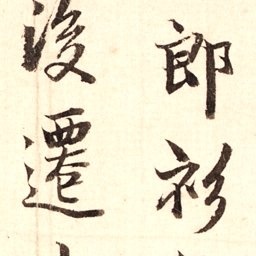 郎衫
後遷